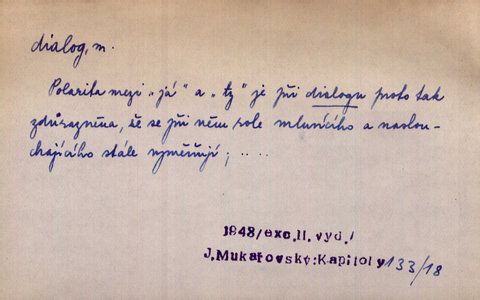 dialog, m.
Polarita mezi „já" a „ty" je při dialogu proto tak
zdůrazněna, že se při něm role mluvícího a naslou-
chajícího stále vyměňují; ....
1948/exc.II. vyd./
J.Mukařovský:Kapitoly 133/18